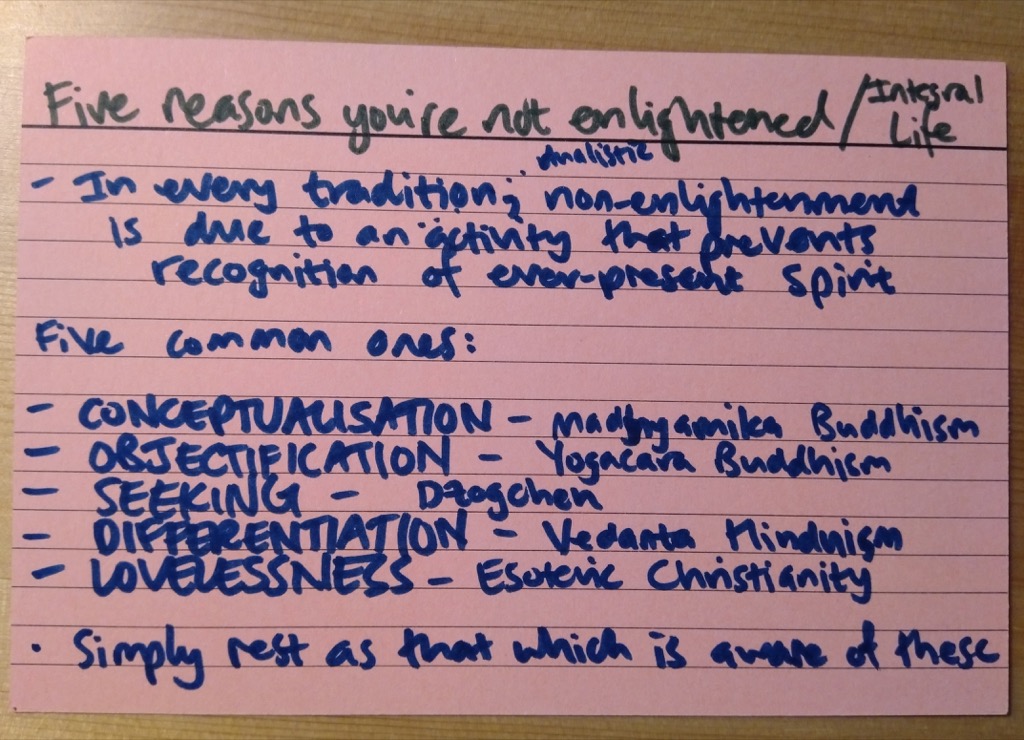 Five reasons you're not enlightened / Integral Life
dualistic
- In every tradition, non-enlightenment
is due to an activity that prevents
recognition of ever-present spirit
Five common ones:
- CONCEPTUALISATION - Madhyamika Buddhism
- OBJECTIFICATION - Yogacara Buddhism
- SEEKING - Dzogchen
- DIFFERENTIATION - Vedanta Hinduism
- LOVELESSNESS - Esoteric Christianity
· Simply rest as that which is aware of these